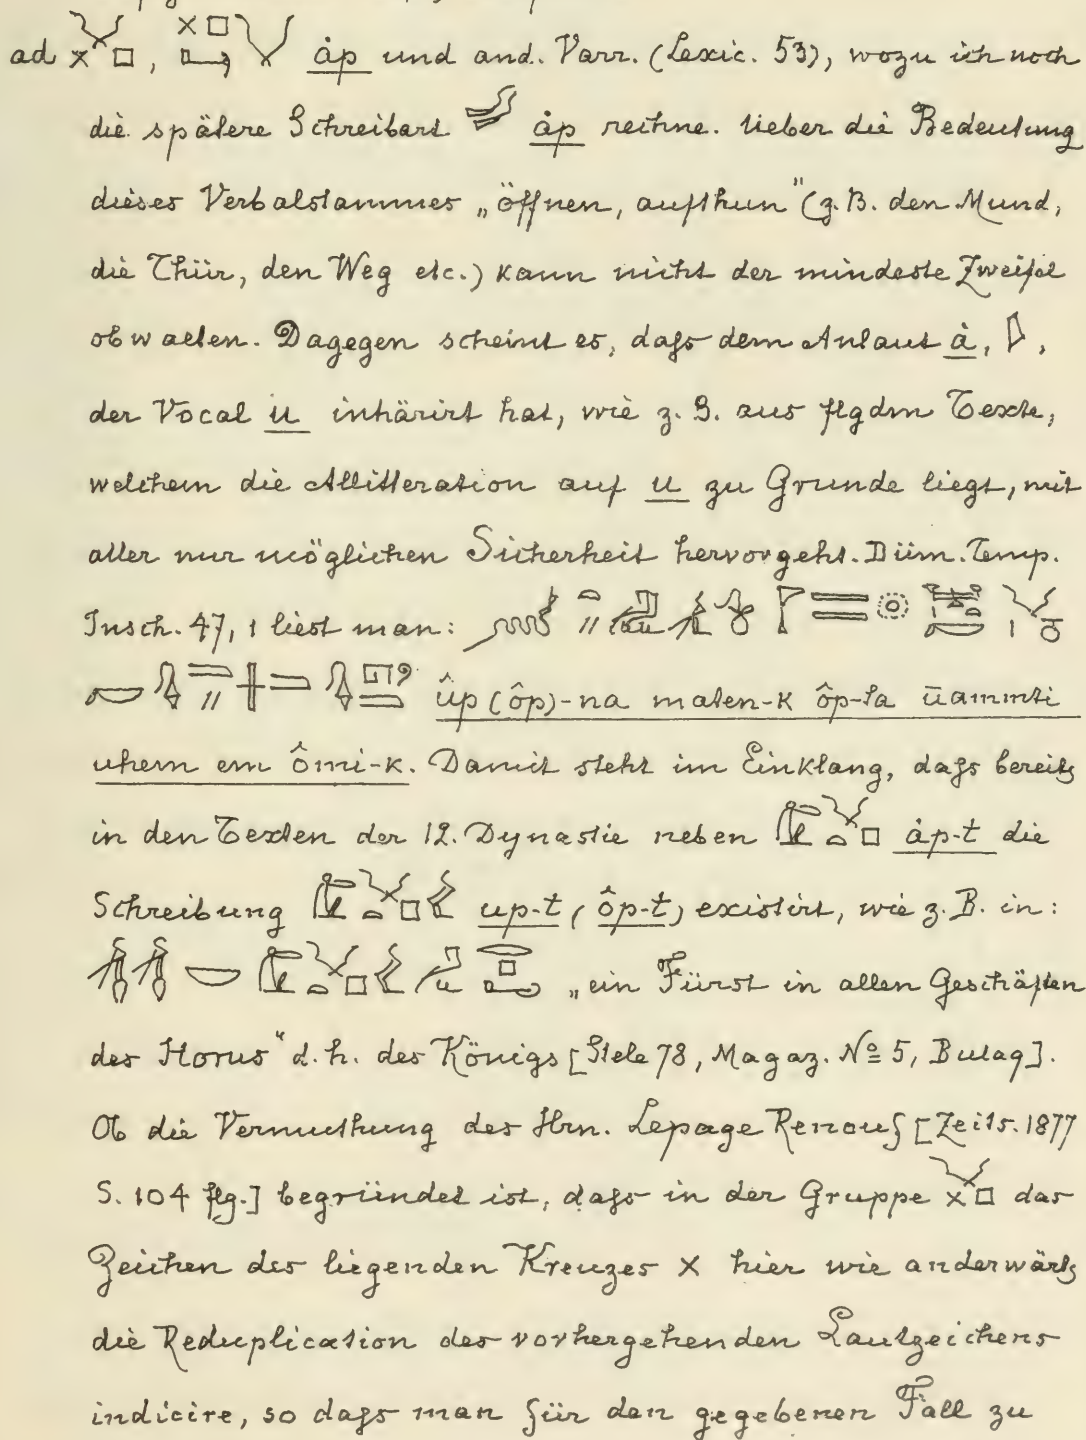 ad , àp und and. Varr. (Lexic. 53), wozu ich noch
die spätere Schreibart àp rechne. Ueber die Bedeutung
dieses Verbalstammes „öffnen, aufthun" (z.B. den Mund,
die Thür, den Weg etc.) kann nicht der mindeste Zweifel
obwalten. Dagegen scheint es, daſs dem Anlaut à, ,
der Vocal u inhärirt hat, wie z. B. aus flgdm Texte,
welchem die Allitteration auf u zu Grunde liegt, mit
aller nur möglichen Sicherheit hervorgeht. Düm. Temp.
Insch. 47, 1 liest man:
ûp (ôp)-na maten-k ôp-ta ūammti
uhem em ômi-k. Damit steht im Einklang, daſs bereits
in den Texten der 12. Dynastie neben àp-t die
Schreibung up-t (ôp-t) existirt, wie z. B. in:
„ein Fürst in allen Geschäften
des Horus" d. h. des Königs [Stele 78, Magaz. Nº 5, Bulaq].
Ob die Vermuthung des Hrn. Lepage Renouf [Zeits. 1877
S. 104 flg.] begründet ist, daſs in der Gruppe das
Zeichen des liegenden Kreuzes × hier wie anderwärts
die Reduplication des vorhergehenden Lautzeichens
indicire, so daſs man für den gegebenen Fall zu